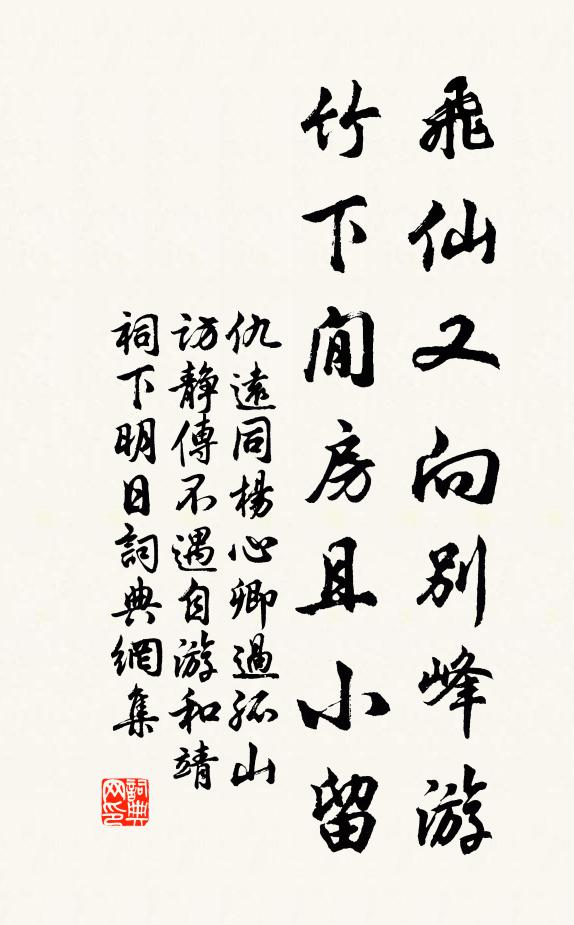 飛仙又向別峰游
竹下閒房且小留
仇遠同楊心卿過孤山
訪靜傳不遇自游和靖
祠下明日詞典網集
詞典
网印